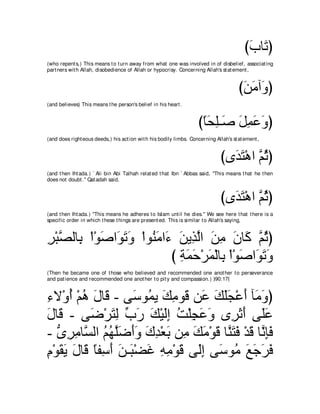 (تَابَ)
(who repents,) This means to turn away from what one was involved in of disbelief, associating
partners with Allah, disobedience of Allah or hypocrisy. Concerning Allah's statement,
(وَآمَنَ)
(and believes) This means the person's belief in his heart.
(وَعَمِلَ صَـلِحَاً)
(and does righteous deeds,) his action with his bodily limbs. Concerning Allah's statement,
(ثُمَّ اهْتَدَى)
(and then Ihtada.) `Ali bin Abi Talhah related that Ibn `Abbas said, "This means that he then
does not doubt." Qatadah said,
(ثُمَّ اهْتَدَى)
(and then Ihtada.) "This means he adheres to Islam until he dies." We see here that there is a
specific order in which these things are presented. This is similar to Allah's saying,
(ثُمَّ كَانَ مِنَ الَّذِينَ ءَامَنُواْ وَتَوَاصَوْاْ بِالصَّبْرِ
وَتَوَاصَوْاْ بِالْمَرْحَمَةِ )
(Then he became one of those who believed and recommended one another to perseverance
and patience and recommended one another to pity and compassion.) (90:17)
وَمَآ أَعْجَلَكَ عَن قَومِكَ يمُوسَى - قَالَ هُمْ أُوْلاءِ
عَلَى أَثَرِى وَعَجِلْتُ إِلَيْكَ رَبِّ لِتَرْضَى - قَالَ
فَإِنَّا قَدْ فَتَنَّا قَوْمَكَ مِن بَعْدِكَ وَأَضَلَّهُمُ السَّامِرِىُّ -
فَرَجَعَ مُوسَى إِلَى قَوْمِهِ غَضْبَـنَ أَسِفاً قَالَ يَقَوْمِ